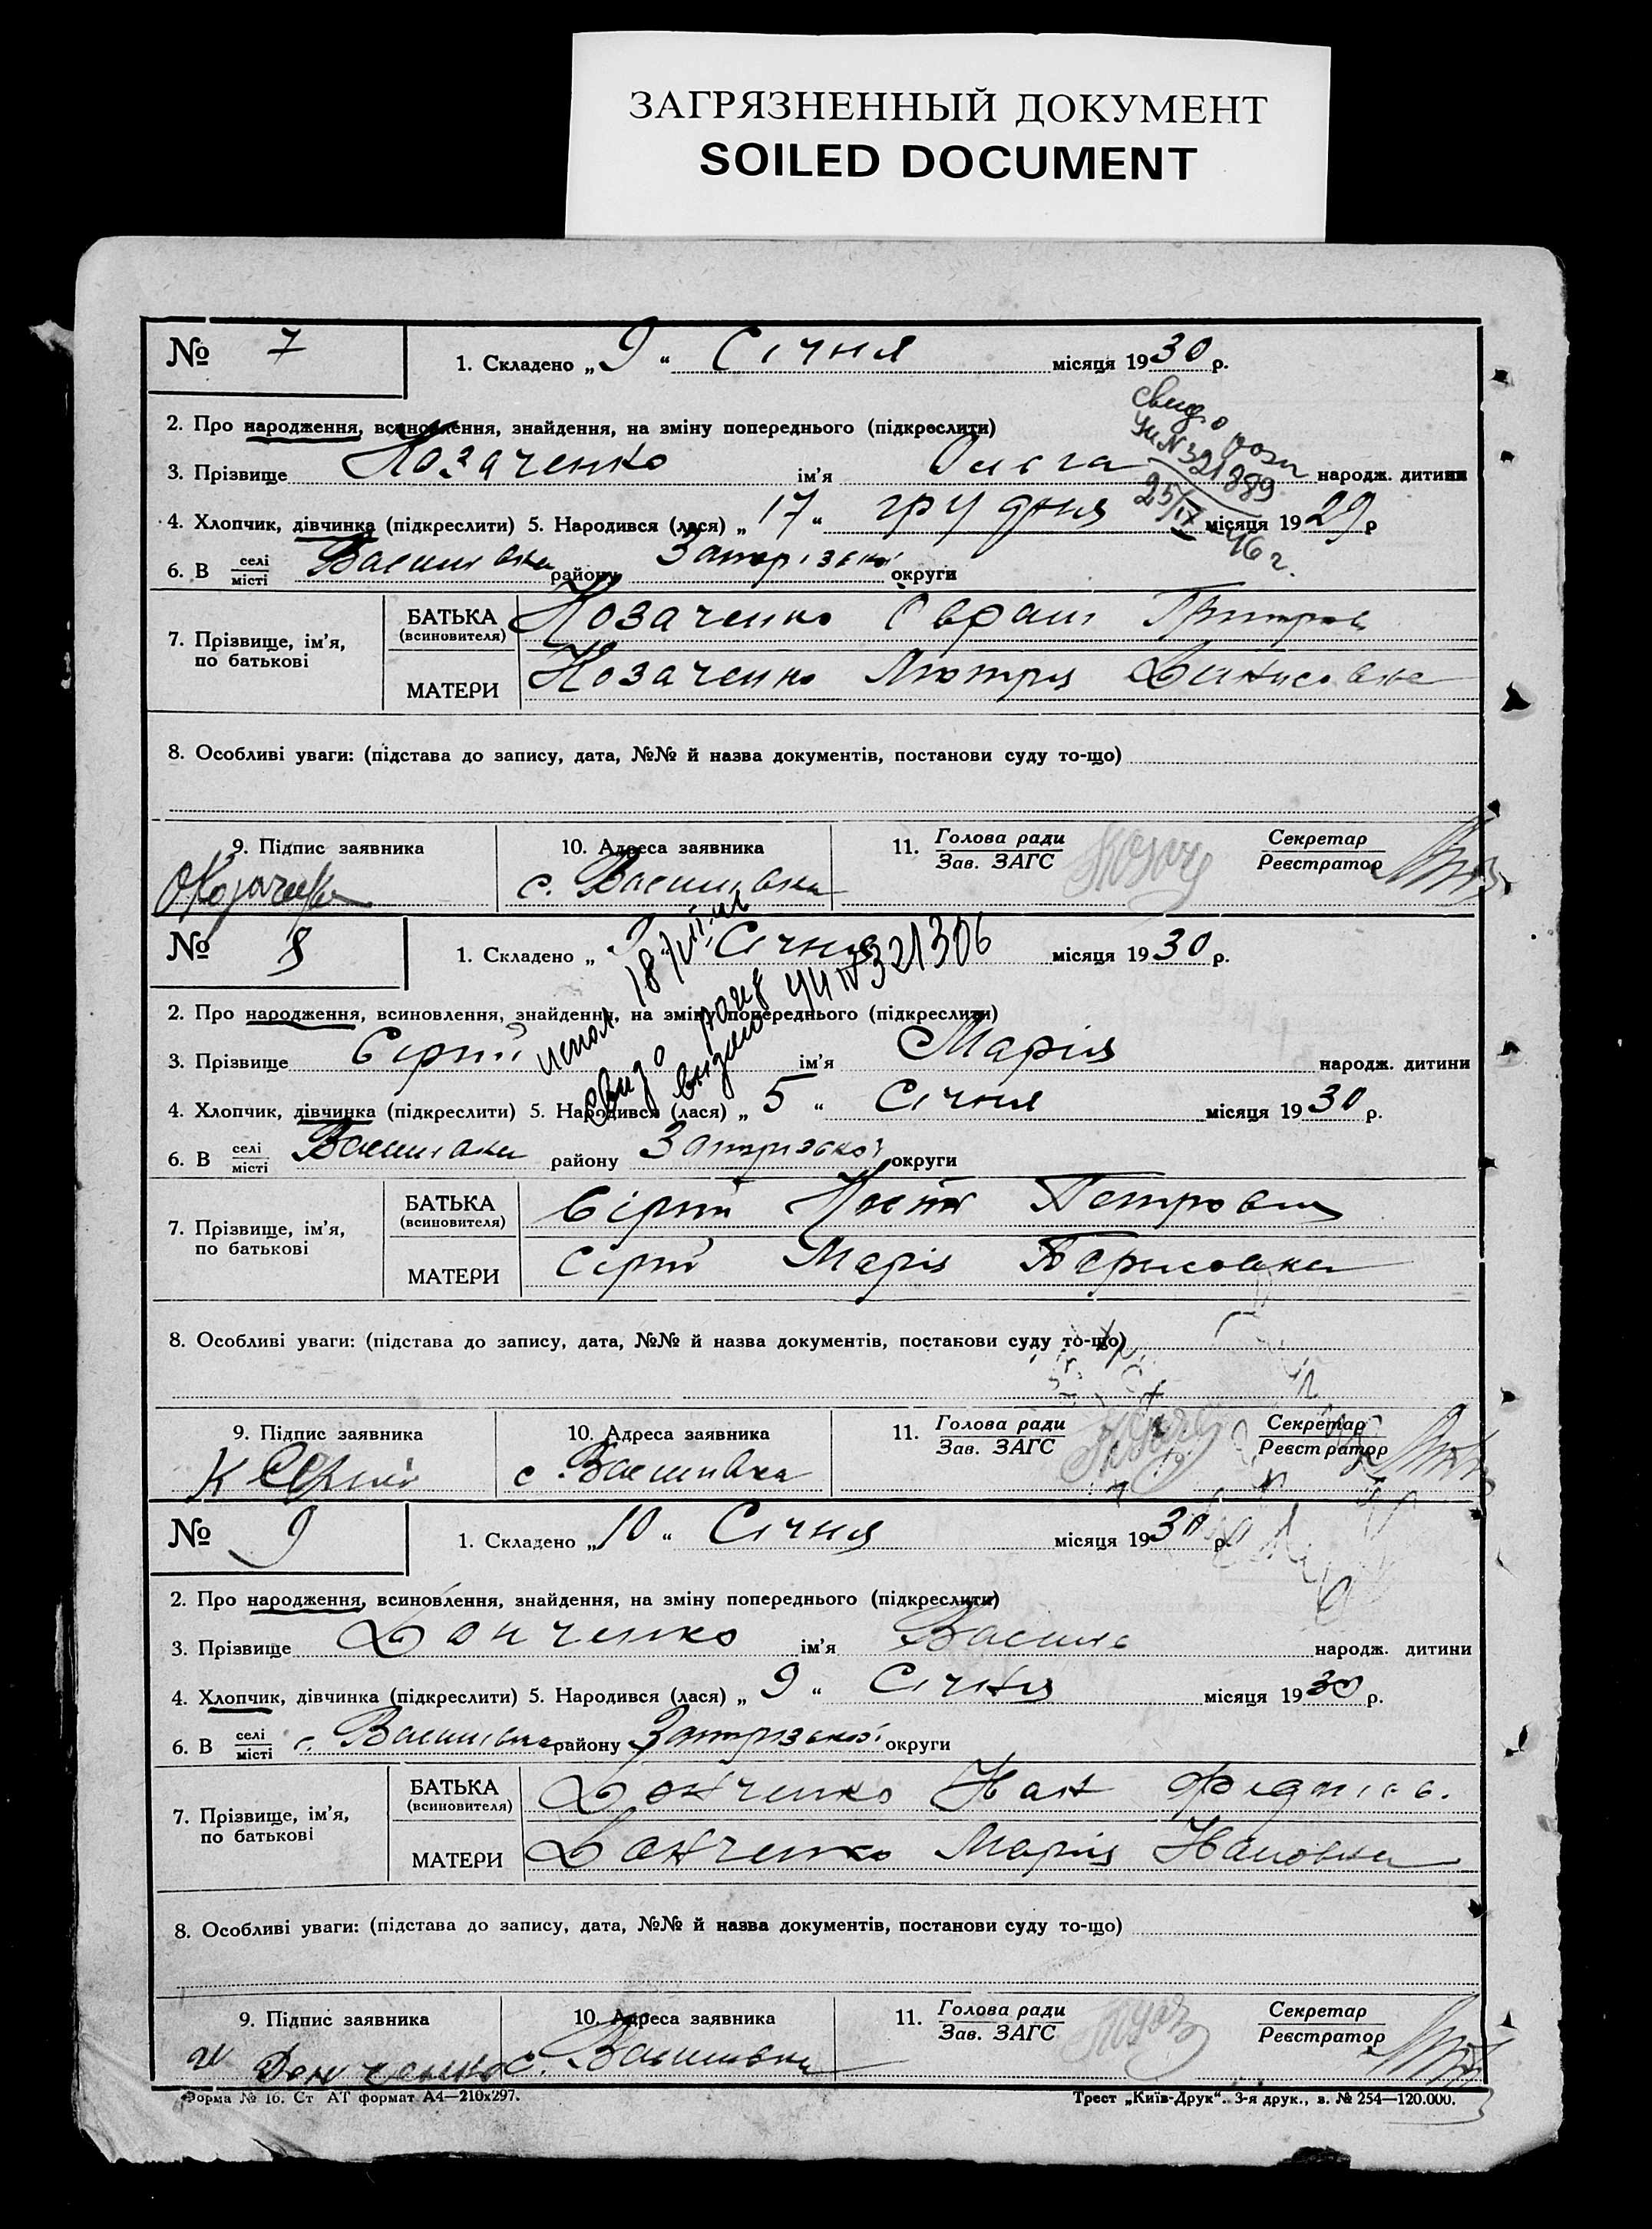 ЗАГРЯЗНЕННЫЙ ДОКУМЕНТ
SOILED DOCUMENT
№ 7
1. Складено „ 9 “ Січня місяця 1930 р.
2. Про народження, всиновлення, знайдення, на зміну попереднього (підкреслити)
3. Прізвище Козаченко ім'я Ольга народж. дитини
4. Хлопчик, дівчинка (підкреслити) 5. Народився (лася) „ 17 “ грудня місяця 1929 р
6. В селі місті Василівка району Запорізької округи
7. Прізвище, ім'я, по батькові
БАТЬКА (всиновителя) Козаченко
МАТЕРИ Козаченко Мотря Денисовна
8. Особливі уваги: (підстава до запису, дата, №№ й назва документів, постанови суду то-що)
9. Підпис заявника 10. Адреса заявника 11. Голова ради Зав. ЗАГС Секретар Реєстратор
с. Василівка
№ 8
1. Складено „ 9 “ Січня місяця 1930 р.
2. Про народження, всиновлення, знайдення, на зміну попереднього (підкреслити)
3. Прізвище Сірий ім'я Марія народж. дитини
4. Хлопчик, дівчинка (підкреслити) 5. Народився (лася) „ 5 “ Січня місяця 1930 р.
6. В селі місті Василівка району Запорізької округи
7. Прізвище, ім'я, по батькові
БАТЬКА (всиновителя) Сірий Петрович
МАТЕРИ Сірий Марія
8. Особливі уваги: (підстава до запису, дата, №№ й назва документів, постанови суду то-що)
9. Підпис заявника 10. Адреса заявника 11. Голова ради Зав. ЗАГС Секретар Реєстратор
К Сірий с. Василівка
№ 9
1. Складено „ 10 “ Січня місяця 1930 р.
2. Про народження, всиновлення, знайдення, на зміну попереднього (підкреслити)
3. Прізвище Донченко ім'я Василь народж. дитини
4. Хлопчик, дівчинка (підкреслити) 5. Народився (лася) „ 9 “ Січня місяця 1930 р.
6. В селі місті с. Василівка району Запорізької округи
7. Прізвище, ім'я, по батькові
БАТЬКА (всиновителя) Донченко
МАТЕРИ Донченко Марія
8. Особливі уваги: (підстава до запису, дата, №№ й назва документів, постанови суду то-що)
9. Підпис заявника 10. Адреса заявника 11. Голова ради Зав. ЗАГС Секретар Реєстратор
Донченко с. Василівка
Форма № 16. Ст АТ формат А4—210x297.
Трест „Київ-Друк“. 3-я друк., з. № 254—120.000.